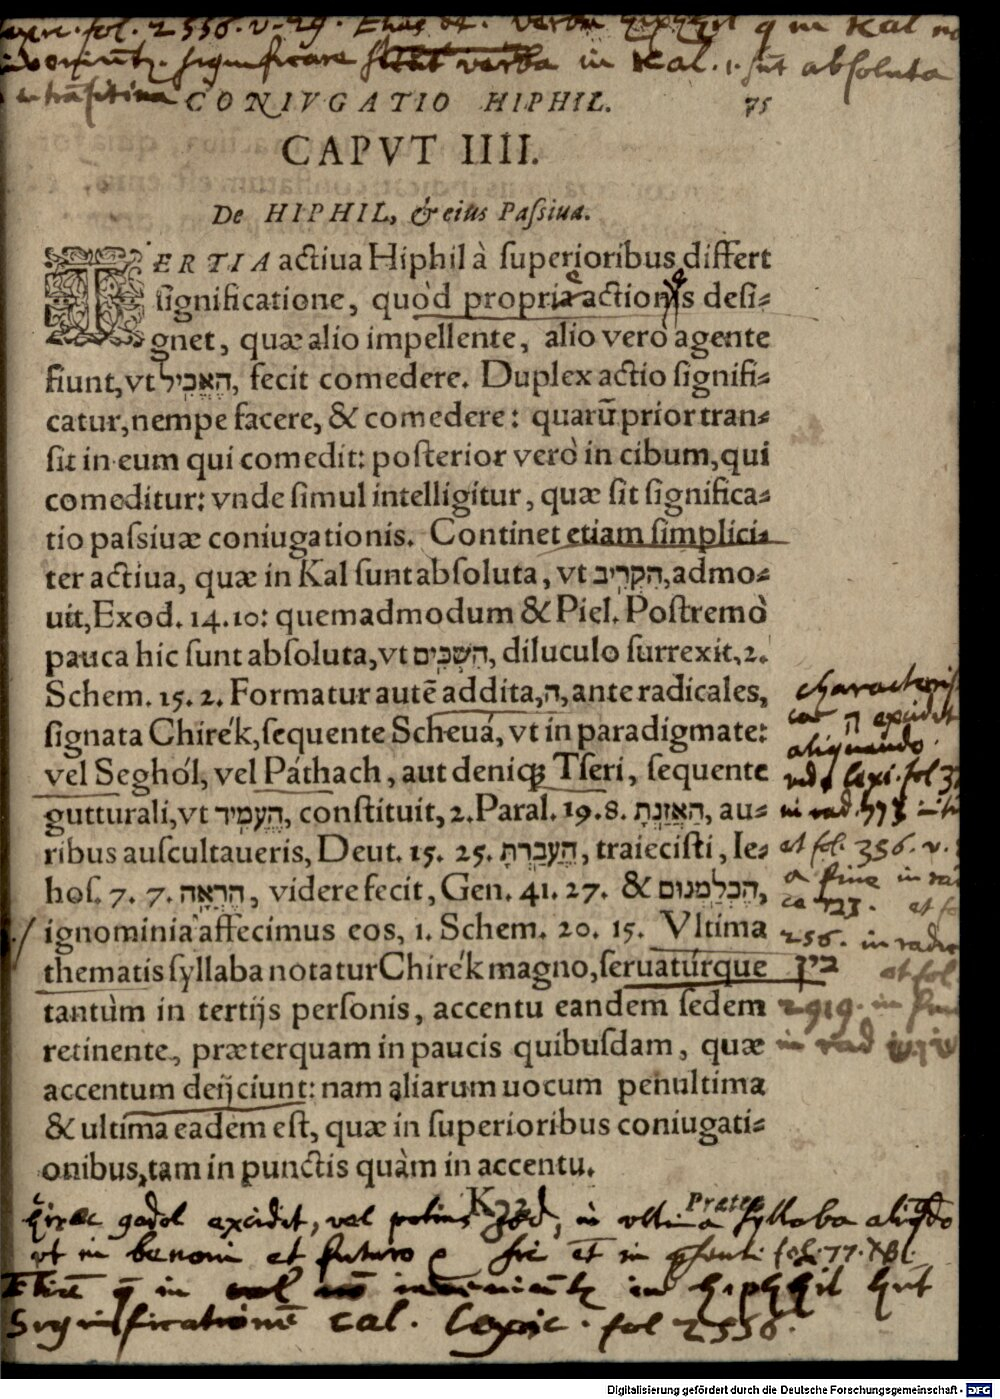 fol. 2556. v. 29. verba hiphhil q in Kal
significare sicut verba in Kal. i. sūt absoluta
CONIVGATIO HIPHIL. 75
CAPVT IIII.
De HIPHIL, & eius Paſſiua.
TERTIA actiua Hiphil à ſuperioribus differt
ſignificatione, quòd propria actionis deſi-
gnet, quæ alio impellente, alio verò agente
fiunt, vt הֶאֱכִיל, fecit comedere. Duplex actio ſignifi-
catur, nempe facere, & comedere: quarū prior tran-
ſit in eum qui comedit: poſterior verò in cibum, qui
comeditur: vnde ſimul intelligitur, quæ ſit ſignifica-
tio paſsiuæ coniugationis. Continet etiam ſimplici-
ter actiua, quæ in Kal ſunt abſoluta, vt הִקְרִיב, admo-
uit, Exod. 14. 10: quemadmodum & Piel. Poſtremò
pauca hic ſunt abſoluta, vt הִשְׁכִּים, diluculo ſurrexit, 2.
Schem. 15. 2. Formatur autē addita, ה, ante radicales,
ſignata Chirék, ſequente Scheuá, vt in paradigmate:
vel Seghól, vel Páthach, aut deniq; Tſeri, ſequente
gutturali, vt הֶעֱמִיד, conſtituit, 2. Paral. 19. 8. הַאֲזַנְתָּ, au-
ribus auſcultaueris, Deut. 15. 25. הֵעֲבַרְתָּ, traieciſti, Ie-
hoſ. 7. 7. הֶרְאָה, videre fecit, Gen. 41. 27. & הֶכְלַמְנוּם,
ignominia affecimus eos, 1. Schem. 20. 15. Vltima
thematis ſyllaba notatur Chirék magno, ſeruatúrque
tantùm in tertijs perſonis, accentu eandem ſedem
retinente, præterquam in paucis quibuſdam, quæ
accentum deijciunt: nam aliarum uocum penultima
& ultima eadem eſt, quæ in ſuperioribus coniugati-
onibus, tam in punctis quàm in accentu.
ה excidit
aliquando
et fol. 356. v.
256. in radice
בין et fol
2919. in
in rad
gadol excidit, vel potius Jod, in ultima syllaba
ut in benoni et futuro sic et in fol. 77.
significationē cal. Lexic. fol 2556.